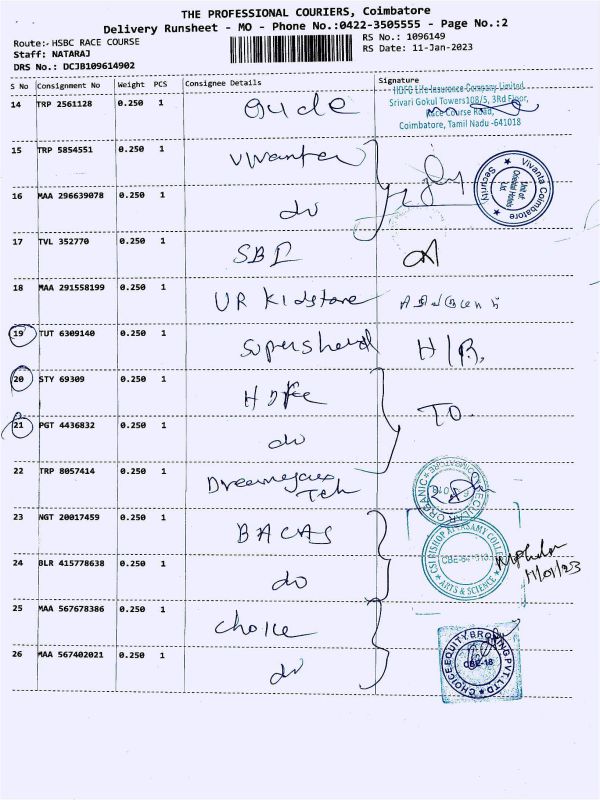 THE PROFESSIONAL COURIERS, Coimbatore
Delivery Runsheet - MO - Phone No.:0422-3505555 - Page No.:2
Route:- HSBC RACE COURSE
Staff: NATARAJ
DRS No.: DCJB109614902
RS No.: 1096149
RS Date: 11-Jan-2023
S No Consignment No Weight PCS Consignee Details Signature
14 TRP 2561128 0.250 1
HDFC Life Insurance Company Limited
Srivari Gokul Towers108/5, 3Rd Floor,
Race Course Road,
Coimbatore, Tamil Nadu -641018
15 TRP 5854551 0.250 1 Vivanta
Vivanta Coimbatore
Unit of: Oriental Hotels Ltd.
Security
16 MAA 296639078 0.250 1 do
17 TVL 352770 0.250 1 SBI
18 MAA 291558199 0.250 1 UR Kidstore
19 TUT 6309140 0.250 1 H/R.
20 STY 69309 0.250 1 TO
21 PGT 4436832 0.250 1 do
22 TRP 8057414 0.250 1 Tech
23 NGT 20017459 0.250 1 BACAS
CSI BISHOP APPASAMY COLLEGE
ARTS & SCIENCE
11/01/23
24 BLR 415778638 0.250 1 do
25 MAA 567678386 0.250 1 Choice
CHOICE EQUITY BROKING PVT. LTD
CBE-18
26 MAA 567402021 0.250 1 do